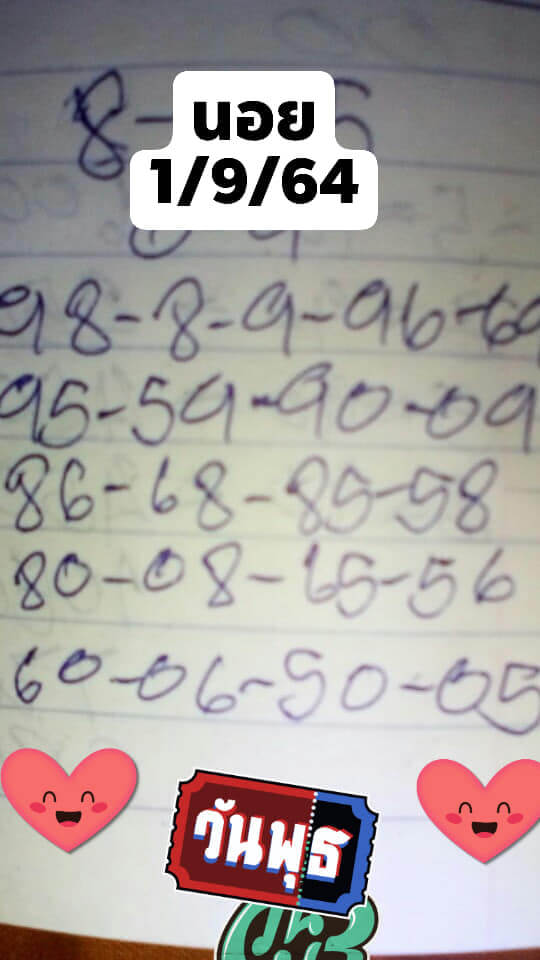 นอย
1/9/64
98-8-9-96-69
95-59-90-09
86-68-85-58
80-08-65-56
60-06-50-05
วันพุธ